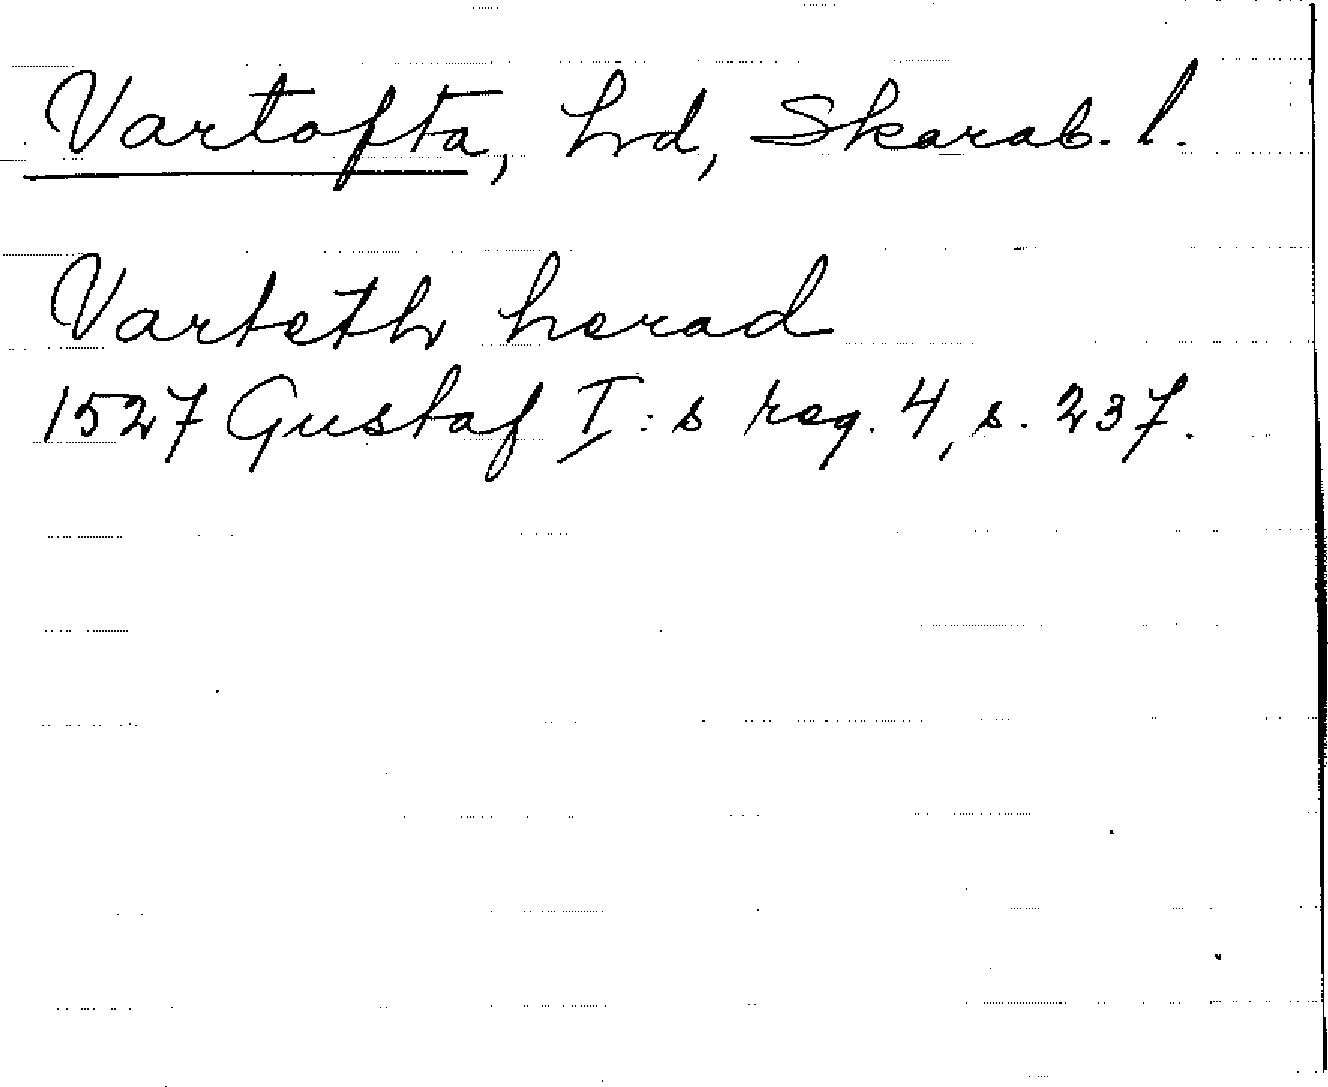 Vartofta, hd, Skarab. l.
Varteth herad
1527 Gustaf I:s reg. 4, s. 237.